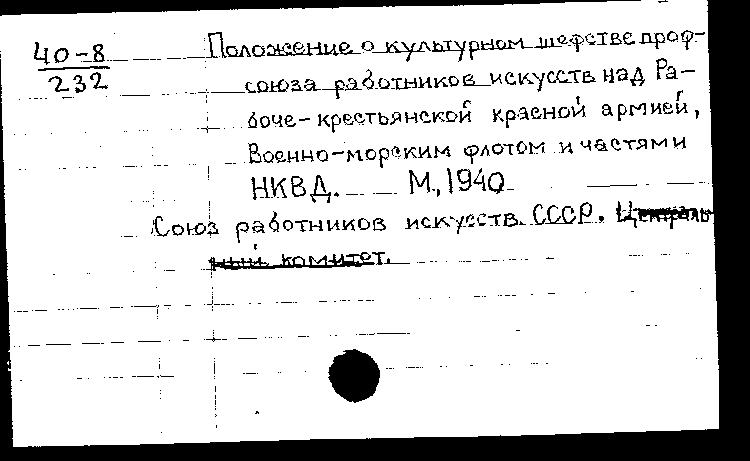 40-8
232
Положение о культурном шефстве проф-
союза работников искусств над Ра-
боче-крестьянской красной армией,
Военно-морским флотом и частями
НКВД. М., 1940
Союз работников искусств СССР. Централь
ный комитет.